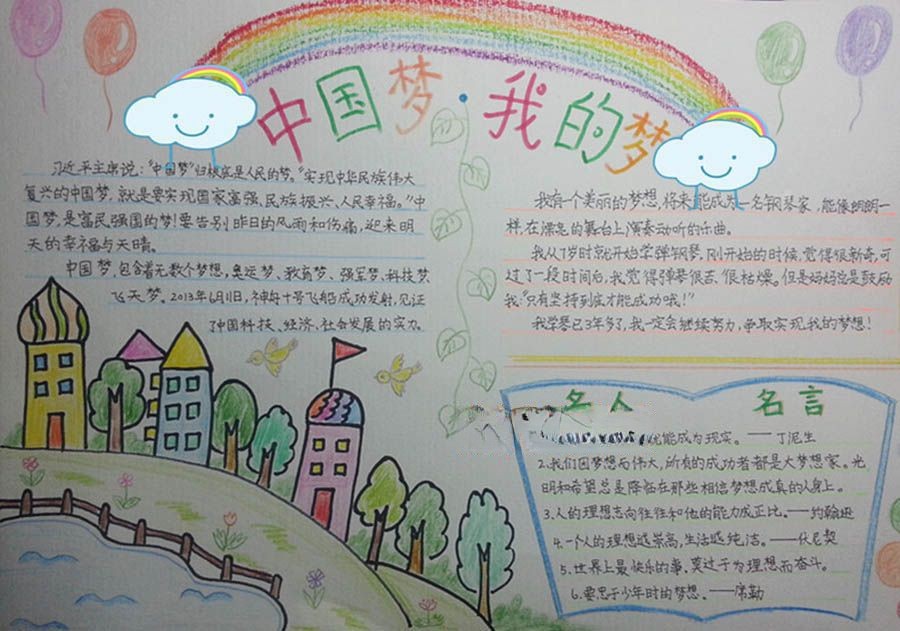 中国梦·我的梦
习近平主席说："中国梦"归根底是人民的梦。"实现中华民族伟大
复兴的中国梦，就是要实现国家富强、民族振兴、人民幸福。"中
国梦，是富民强国的梦！要告别昨日的风雨和伤痛，迎来明
天的幸福与天晴。
中国梦，包含着无数个梦想，奥运梦、教育梦、强军梦、科技梦
飞天梦。2013年6月11日，神舟十号飞船成功发射，见证
了中国科技、经济、社会发展的实力。
我有个美丽的梦想，将来能成为一名钢琴家，能像朗朗一
样，在漂亮的舞台上演奏动听的乐曲。
我从7岁时就开始学弹钢琴，刚开始的时候，觉得很新奇，可
过了一段时间后，我觉得弹琴很苦、很枯燥。但是妈妈总是鼓励
我："只有坚持到底才能成功哦！"
我学琴已3年多了，我一定会继续努力，争取实现我的梦想！
名人名言
就能成为现实。——丁尼生
2.我们因梦想而伟大，所有的成功者都是大梦想家。光
明和希望总是降临在那些相信梦想成真的人身上。
3.人的理想志向往往和他的能力成正比。——约翰逊
4.一个人的理想越崇高，生活越纯洁。——伏尼契
5.世界上最快乐的事，莫过于为理想而奋斗。
6.要忠于少年时的梦想。——席勒